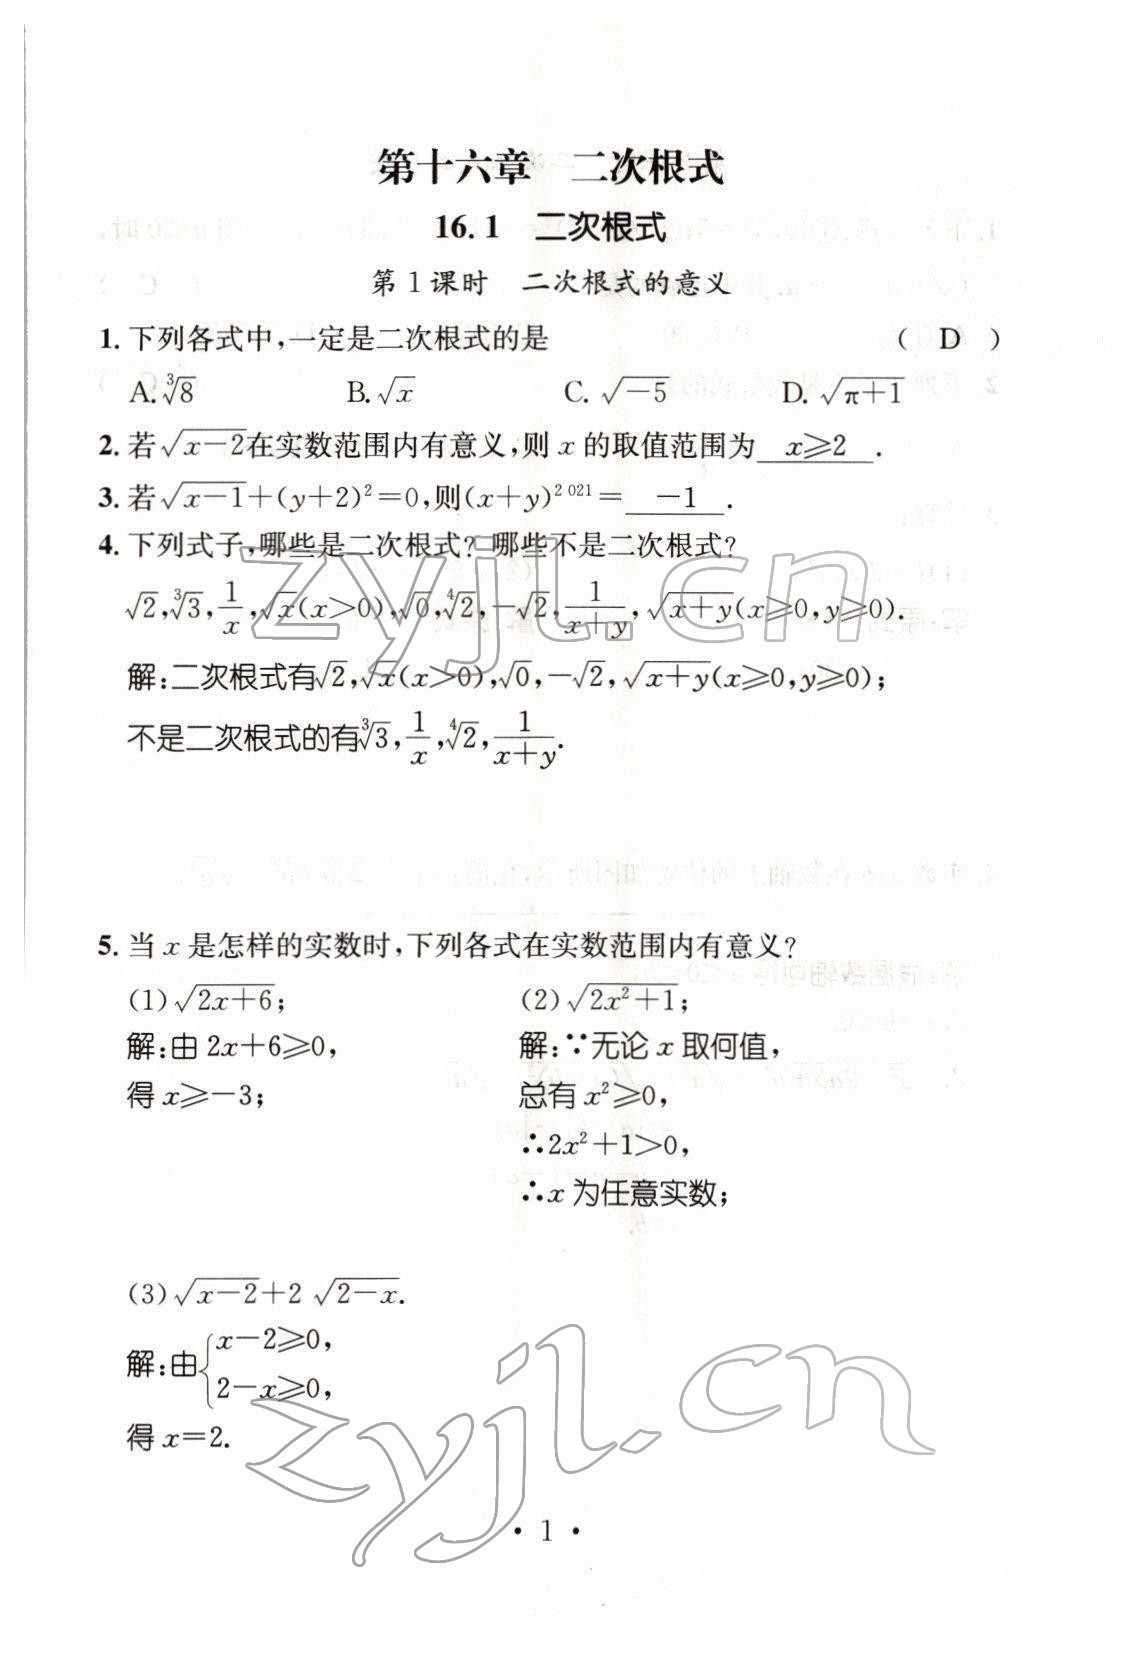 第十六章　二次根式
16.1　二次根式
第1课时　二次根式的意义
1. 下列各式中,一定是二次根式的是　( D )
A. ∛8　B. √x　C. √(-5)　D. √(π+1)
2. 若√(x-2)在实数范围内有意义,则 x 的取值范围为 x≥2 .
3. 若√(x-1)+(y+2)²=0,则(x+y)²⁰²¹= -1 .
4. 下列式子,哪些是二次根式? 哪些不是二次根式?
√2,∛3,1/x,√x(x>0),√0,∜2,-√2,1/(x+y),√(x+y)(x≥0,y≥0).
解:二次根式有√2,√x(x>0),√0,-√2,√(x+y)(x≥0,y≥0);
不是二次根式的有∛3,1/x,∜2,1/(x+y).
5. 当 x 是怎样的实数时,下列各式在实数范围内有意义?
(1)√(2x+6);
解:由 2x+6≥0,
得 x≥-3;
(2)√(2x²+1);
解:∵无论 x 取何值,
总有 x²≥0,
∴2x²+1>0,
∴x 为任意实数;
(3)√(x-2)+2√(2-x).
解:由{x-2≥0,
2-x≥0,
得 x=2.
· 1 ·
zyjl.cn
zyjl.cn